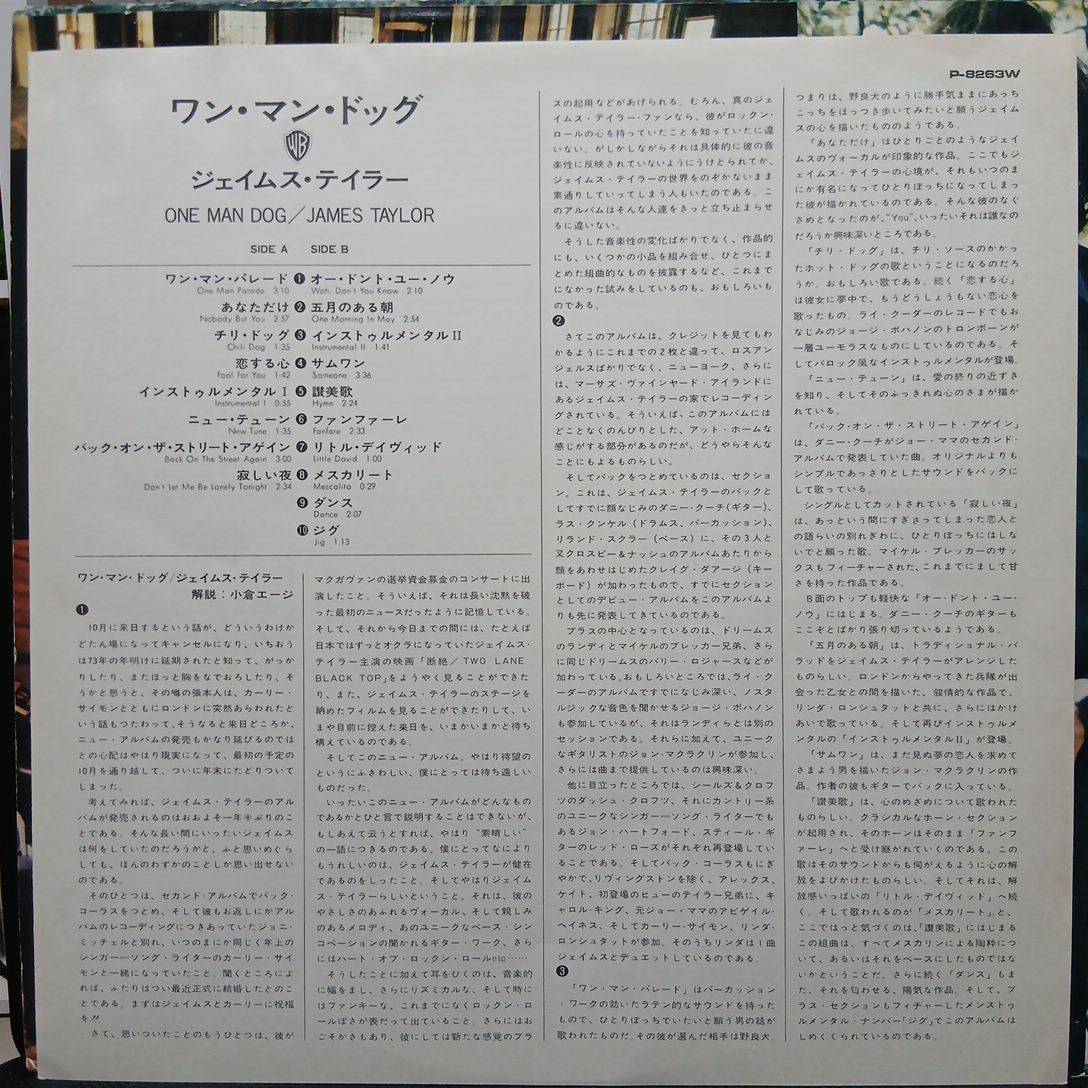 P-8263W
ワン・マン・ドッグ
WB
ジェイムス・テイラー
ONE MAN DOG／JAMES TAYLOR
SIDE A SIDE B
ワン・マン・パレード ❶ オー・ドント・ユー・ノウ
One Man Parade 3:10 Woh, Don't You Know 2:10
あなただけ ❷ 五月のある朝
Nobody But You 2:57 One Morning In May 2:54
チリ・ドッグ ❸ インストゥルメンタルⅡ
Chili Dog 1:35 Instrumental II 1:41
恋する心 ❹ サムワン
Fool For You 1:42 Someone 3:36
インストゥルメンタルⅠ ❺ 讃美歌
Instrumental I 0:55 Hymn 2:24
ニュー・テューン ❻ ファンファーレ
New Tune 1:35 Fanfare 2:33
バック・オン・ザ・ストリート・アゲイン ❼ リトル・デイヴィッド
Back On The Street Again 3:00 Little David 1:00
寂しい夜 ❽ メスカリート
Don't Let Me Be Lonely Tonight 2:34 Mescalito 0:29
❾ ダンス
Dance 2:07
❿ ジグ
Jig 1:13
ワン・マン・ドッグ/ジェイムス・テイラー
解説：小倉エージ
❶
10月に来日するという話が、どういうわけか
どたん場になってキャンセルになり、いちおう
は73年の年明けに延期されたと知って、がっか
りしたり、またほっと胸をなでおろしたり、そ
うかと思うと、その噂の張本人は、カーリー・
サイモンとともにロンドンに突然あらわれたと
いう話もつたわって、そうなると来日どころか、
ニュー・アルバムの発売もかなり延びるのでは
との心配はやはり現実になって、最初の予定の
10月を通り越して、ついに年末にたどりついて
しまった。
考えてみれば、ジェイムス・テイラーのアル
バムが発売されるのはおおよそ一年半ぶりのこ
とである。そんな長い間にいったいジェイムス
は何をしていたのだろうかと、ふと思いめぐら
しても、ほんのわずかのことしか思い出せない
のである。
そのひとつは、セカンド・アルバムでバック・
コーラスをつとめ、そして彼もお返しにかアル
バムのレコーディングにつきあっていたジョニ・
ミッチェルと別れ、いつのまにか同じく年上の
シンガー＝ソング・ライターのカーリー・サイ
モンと一緒になっていたこと。聞くところによ
れば、ふたりはつい最近正式に結婚したとのこ
とである。まずはジェイムスとカーリーに祝福
を!!
さて、思いついたことのもうひとつは、彼が
マクガヴァンの選挙資金募金のコンサートに出
演したこと。そういえば、それは長い沈黙を破
った最初のニュースだったように記憶している。
そして、それから今日までの間には、たとえば
日本ではずっとオクラになっていたジェイムス・
テイラー主演の映画「断絶／TWO LANE
BLACK TOP」をようやく見ることができた
り、また、ジェイムス・テイラーのステージを
納めたフィルムを見ることができたりして、い
まや目前に控えた来日を、いまかいまかと待ち
構えているのである。
そしてこのニュー・アルバム。やはり待望の
というにふさわしい、僕にとっては待ち遠しい
ものだった。
いったいこのニュー・アルバムがどんなもの
であるかとひと言で説明することはできないが、
もしあえて云うとすれば、やはり“素晴しい”
の一語につきるのである。僕にとってなにより
もうれしいのは、ジェイムス・テイラーが健在
であるのをしったこと。そしてやはりジェイム
ス・テイラーらしいということ。それは、彼の
やさしさのあふれるヴォーカル、そして親しみ
のあるメロディ、あのユニークなベース・シン
コペーションの聞かれるギター・ワーク、さら
にはハート・オブ・ロックン・ロールetc……
そうしたことに加えて耳をひくのは、音楽的
に幅をまし、さらにリズミカルな、そして時に
はファンキーな、これまでになくロックン・ロ
ールぽさが表だって出ていること。さらにはお
ごそかさもあり、彼にしては新たな感覚のブラ
スの起用などがあげられる。むろん、真のジェ
イムス・テイラー・ファンなら、彼がロックン・
ロールの心を持っていたことを知っていたに違
いない。がしかしながらそれは具体的に彼の音
楽性に反映されていないようにうけとられてか、
ジェイムス・テイラーの世界をのぞかないまま
素通りしていってしまう人もいたのである。こ
のアルバムはそんな人達をきっと立ち止まらせ
るに違いない。
そうした音楽性の変化ばかりでなく、作品的
にも、いくつかの小品を組み合せ、ひとつにま
とめた組曲的なものを披露するなど、これまで
になかった試みをしているのも、おもしろいも
のである。
❷
さてこのアルバムは、クレジットを見てもわ
かるようにこれまでの2枚と違って、ロスアン
ジェルスばかりでなく、ニューヨーク、さらに
は、マーサズ・ヴァインヤード・アイランドに
あるジェイムス・テイラーの家でレコーディン
グされている。そういえば、このアルバムには
どことなくのんびりとした、アット・ホームな
感じがする部分があるのだが、どうやらそんな
ことにもよるものらしい。
そしてバックをつとめているのは、セクショ
ン。これは、ジェイムス・テイラーのバックと
してすでに顔なじみのダニー・クーチ(ギター)、
ラス・クンケル（ドラムス、パーカッション)、
リランド・スクラー（ベース）に、その3人と
又クロスビー＆ナッシュのアルバムあたりから
顔をあわせはじめたクレイグ・ダアージ（キー
ボード）が加わったもので、すでにセクション
としてのデビュー・アルバムをこのアルバムよ
りも先に発表してきているのである。
ブラスの中心となっているのは、ドリームス
のランディとマイケルのブレッカー兄弟、さら
に同じドリームスのバリー・ロジャースなどが
加わっている。おもしろいところでは、ライ・ク
ーダーのアルバムですでになじみ深い、ノスタ
ルジックな音色を聞かせるジョージ・ボハノン
も参加しているが、それはランディらとは別の
セッションである。それらに加えて、ユニーク
なギタリストのジョン・マクラクリンが参加し、
さらには曲まで提供しているのは興味深い。
他に目立ったところでは、シールズ＆クロフ
ツのダッシュ・クロフツ、それにカントリー系
のユニークなシンガー＝ソング・ライターでも
あるジョン・ハートフォード、スティール・ギ
ターのレッド・ローズがそれぞれ再登場してい
ることである。そしてバック・コーラスもにぎ
やかで、リヴィングストンを除く、アレックス、
ケイト、初登場のヒューのテイラー兄弟に、キ
ャロル・キング、元ジョー・ママのアビゲイル・
ヘイネス、そしてカーリー・サイモン、リンダ・
ロンシュタットが参加。そのうちリンダは1曲
ジェイムスとデュエットしているのである。
❸
「ワン・マン・パレード」はパーカッション
・ワークの効いたラテン的なサウンドを持った
もので、ひとりぼっちでいたいと願う男の話が
歌われたものだ。その彼が選んだ相手は野良犬。
つまりは、野良犬のように勝手気ままにあっち
こっちをほっつき歩いてみたいと願うジェイム
スの心を描いたもののようである。
「あなただけ」はひとりごとのようなジェイ
ムスのヴォーカルが印象的な作品。ここでもジ
ェイムス・テイラーの心境が、それもいつのま
にか有名になってひとりぼっちになってしまっ
た彼が描かれているのである。そんな彼のなぐ
さめとなったのが、“You”、いったいそれは誰なの
だろうか興味深いところである。
「チリ・ドッグ」は、チリ・ソースのかかっ
たホット・ドッグの歌ということになるのだろ
うか。おもしろい歌である。続く「恋する心」
は彼女に夢中で、もうどうしようもない恋心を
歌ったもの。ライ・クーダーのレコードでもお
なじみのジョージ・ボハノンのトロンボーンが
一層ユーモラスなものにしているのである。そ
してバロック風なインストゥルメンタルが登場。
「ニュー・テューン」は、愛の終りの近ずき
を知り、そしてそのふっきれぬ心のさまが描か
れている。
「バック・オン・ザ・ストリート・アゲイン」
は、ダニー・クーチがジョー・ママのセカンド・
アルバムで発表していた曲。オリジナルよりも
シンプルであっさりとしたサウンドをバックに
して歌っている。
シングルとしてカットされている「寂しい夜」
は、あっという間にすぎさってしまった恋人と
の語らいの別れぎわに、ひとりぼっちにはしな
いでと願った歌。マイケル・ブレッカーのサッ
クスもフィーチャーされた、これまでにまして甘
さを持った作品である。
B面のトップも軽快な「オー・ドント・ユー・
ノウ」にはじまる。ダニー・クーチのギターも
ここぞとばかり張り切っているようである。
「五月のある朝」は、トラディショナル・バ
ラッドをジェイムス・テイラーがアレンジした
ものらしい。ロンドンからやってきた兵隊が出
会った乙女との間を描いた、叙情的な作品で、
リンダ・ロンシュタットと共に、さらにはかけ
あいで歌っている。そして再びインストゥルメ
ンタルの「インストゥルメンタルⅡ」が登場。
「サムワン」は、まだ見ぬ夢の恋人を求めて
さまよう男を描いたジョン・マクラクリンの作
品。作者の彼もギターでバックに入っている。
「讃美歌」は、心のめざめについて歌われた
ものらしい。クラシカルなホーン・セクション
が起用され、そのホーンはそのまま「ファンフ
ァーレ」へと受け継がれていくのである。この
歌はそのサウンドからも伺がえるように心の解
放をよびかけたものらしい。そしてそれは、解
放感いっぱいの「リトル・デイヴィッド」へ続
く。そして歌われるのが「メスカリート」と、
ここではっと気づくのは、「讃美歌」にはじまる
この組曲は、すべてメスカリンによる陶粋につ
いて、あるいはそれをベースにしたものではな
いかということだ。さらに続く「ダンス」もま
た、それを匂わせる、陽気な作品。そして、ブ
ラス・セクションもフィチャーしたメンストゥ
ルメンタル・ナンバー「ジグ」でこのアルバムは
しめくくられているのである。